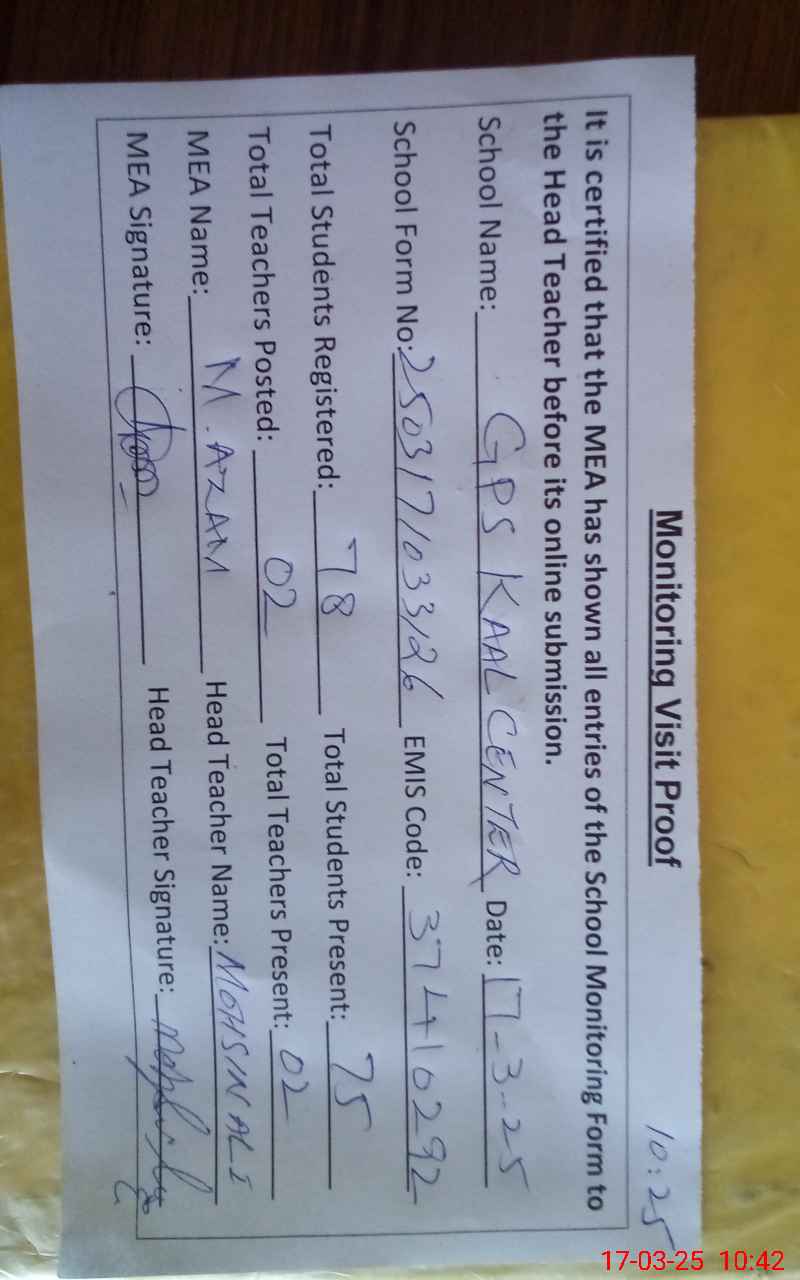 10:25
Monitoring Visit Proof
It is certified that the MEA has shown all entries of the School Monitoring Form to
the Head Teacher before its online submission.
School Name: GPS KAAL CENTER Date: 17-3-25
School Form No: 2503171033126 EMIS Code: 37410292
Total Students Registered: 78 Total Students Present: 75
Total Teachers Posted: 02 Total Teachers Present: 02
MEA Name: M. AZAM Head Teacher Name: MOHSIN ALI
MEA Signature: Head Teacher Signature:
17-03-25 10:42